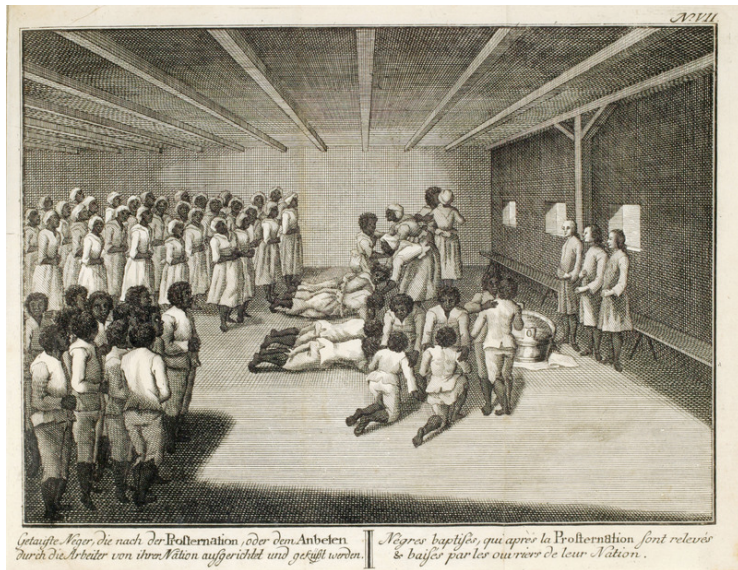 N.º VII
Getaufte Neger, die nach der Prosternation, oder dem Anbeten
durch die Arbeiter von ihrer Nation aufgerichtet und geküßt werden.
Négres baptisés, qui après la Prosternation sont relevés
& baisés par les ouvriers de leur Nation.